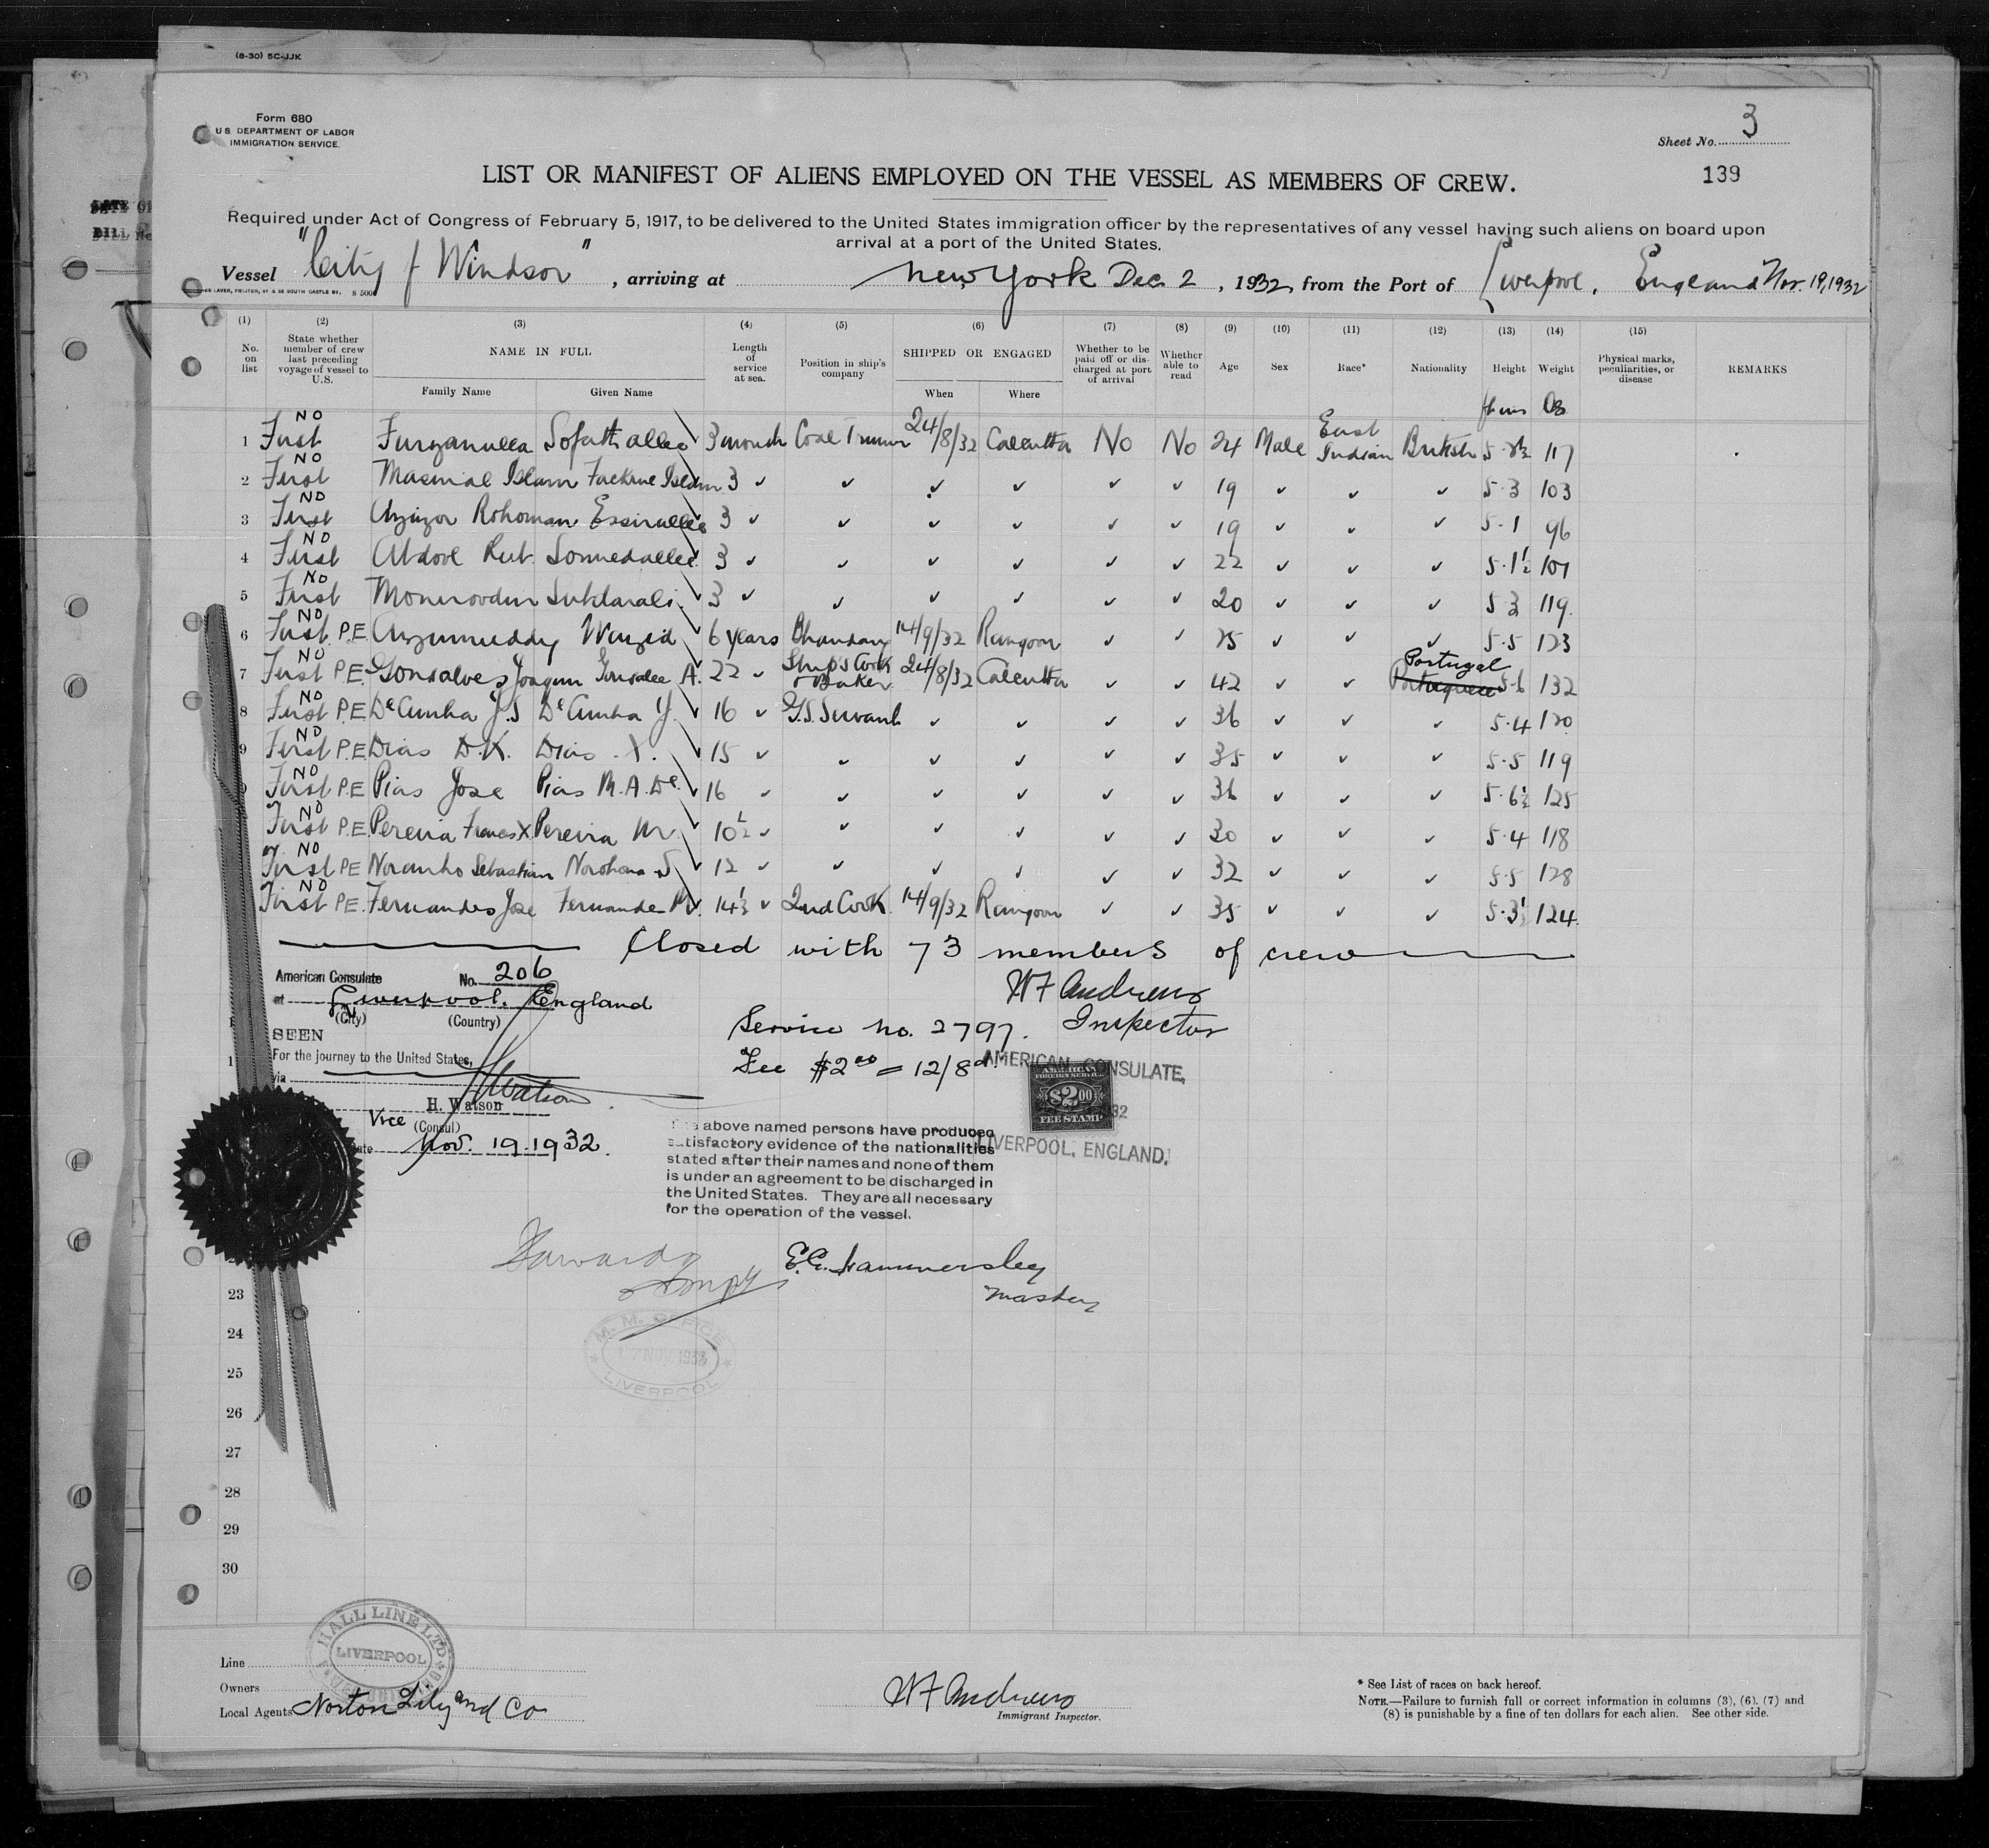 (8-30) 5C-JJK
Form 680
U.S. DEPARTMENT OF LABOR
IMMIGRATION SERVICE.
Sheet No. 3
139
LIST OR MANIFEST OF ALIENS EMPLOYED ON THE VESSEL AS MEMBERS OF CREW.
Required under Act of Congress of February 5, 1917, to be delivered to the United States immigration officer by the representatives of any vessel having such aliens on board upon
arrival at a port of the United States.
Vessel "City of Windsor", arriving at New York Dec. 2, 1932, from the Port of Liverpool, England Nov. 19, 1932
(1) (2) (3) (4) (5) (6) (7) (8) (9) (10) (11) (12) (13) (14) (15)
No. on list
State whether member of crew last preceding voyage of vessel to U.S.
NAME IN FULL
Family Name
Given Name
Length of service at sea.
Position in ship's company
SHIPPED OR ENGAGED
When
Where
Whether to be paid off or discharged at port of arrival
Whether able to read
Age
Sex
Race*
Nationality
Height
Weight
Physical marks, peculiarities, or disease
REMARKS
1 NO First Furzanulla Sofath allee 3 month Coal Trimmer 24/8/32 Calcutta No No 24 Male East Indian British 117
2 NO First Islam Islam 3 ✓ ✓ ✓ ✓ ✓ ✓ 19 ✓ ✓ ✓ 5.3 103
3 NO First Azizor Rohoman 3 ✓ ✓ ✓ ✓ ✓ ✓ 19 ✓ ✓ ✓ 5.1 96
4 NO First Abdool Sonnedallee 3 ✓ ✓ ✓ ✓ ✓ ✓ 22 ✓ ✓ ✓ 5.1½ 107
5 NO First Moniroodin 3 ✓ ✓ ✓ ✓ ✓ ✓ 20 ✓ ✓ ✓ 5 3 119
6 NO First P.E. Azimuddy 6 years Bhandary 14/9/32 Rangoon ✓ ✓ 25 ✓ ✓ ✓ 5.5 123
7 NO First P.E. Gonsalves Joaquim Gonsalve A. 22 ✓ Ship's Cook & Baker 24/8/32 Calcutta ✓ ✓ 42 ✓ ✓ Portugal Portuguese 5.6 132
8 NO First P.E. De Cunha J.S De Cunha J. 16 ✓ G.S. Servant ✓ ✓ ✓ ✓ 36 ✓ ✓ ✓ 5.4 120
9 NO First P.E. Dias D.K. Dias X. 15 ✓ ✓ ✓ ✓ ✓ ✓ 35 ✓ ✓ ✓ 5.5 119
NO First P.E. Pias Jose Pias M.A. De 16 ✓ ✓ ✓ ✓ ✓ ✓ 36 ✓ ✓ ✓ 5.6½ 125
NO First P.E. Pereira Frances X Pereira M 10½ ✓ ✓ ✓ ✓ ✓ ✓ 30 ✓ ✓ ✓ 5.4 118
NO First P.E Noronho Sebastian Norohona S 12 ✓ ✓ ✓ ✓ ✓ ✓ 32 ✓ ✓ ✓ 5.5 128
NO First P.E. Fernandes Jose Fernandes M. 14½ ✓ 2nd Cook 14/9/32 Rangoon ✓ ✓ 35 ✓ ✓ ✓ 5.3½ 124
Closed with 73 members of crew
American Consulate No. 206
at Liverpool. England
(City) (Country)
SEEN
For the journey to the United States,
via
H Watson
H. Watson
Vice (Consul)
Date Nov. 19. 1932.
W F Andrews
Inspector
Service No. 2797.
Fee $2.00 = 12/8d
AMERICAN CONSULATE,
AMERICAN FOREIGN SERVICE
$2.00
FEE STAMP
LIVERPOOL, ENGLAND.
The above named persons have produced
satisfactory evidence of the nationalities
stated after their names and none of them
is under an agreement to be discharged in
the United States. They are all necessary
for the operation of the vessel.
E.G. Hammersley
Master
M. M. OFFICE
17 NOV 1932
LIVERPOOL
23
24
25
26
27
28
29
30
HALL LINE LTD
LIVERPOOL
Line
Owners
Local Agents Norton Lilly and Co
W F Andrews
Immigrant Inspector.
* See List of races on back hereof.
NOTE.—Failure to furnish full or correct information in columns (3), (6), (7) and
(8) is punishable by a fine of ten dollars for each alien. See other side.